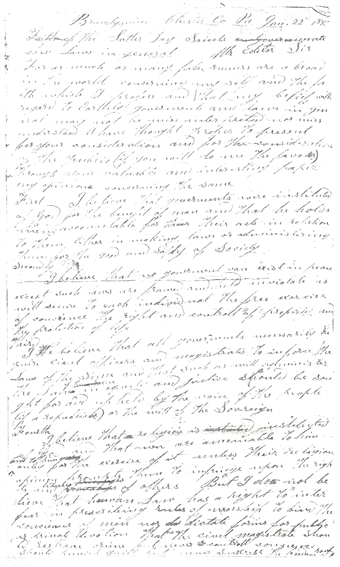 Brandywine Chester Co Pa Jan. 22
of the Latter Day Saints and governments
and laws in general Mr Editor Sir
For as much as many false rumors are abroad
in the world concerning myself and the fa
ith which I profess and that my belief with
regard to Earthly goverments and laws in gen
eral may not be misinterpreted nor mis
understood I have thought proper to present
for your consideration and for the consideration
of the Publick (if you will do me the favor)
through your valuable and interesting paper
my opinions concerning the same
First I believe that goverments were instituted
of God for the benefit of man and that he holds
men accountable for their acts in relation
to them, Either in making laws or administering
them for the good and safty of Society
Secondly
I believe that no goverment can exist in peace
except such laws are framed and held inviolate as
will secure to each individual the free exercise
of concience the right and controll of property and
the protection of life
Third
I believe that all goverments necessarily re
quire civil officers and magistrates to inforce the
laws of the same and that such as will administer
the law in equity and justice should be sou
ght for and upheld by the voice of the People
(if a republick) or the will of the Sovereign
Fourth
I believe that religion is instituted
of God and that men are amenable to him
for the exercise of it unless their religious
opinions them to infringe upon the righ
ts and of others But I do not be
lieve that human Law has a right to inter
fear in prescribing rules of worship to bind the
concience of men nor to dictate forms for public
or private devotion That the civil magistrate shou
ld restrain crime but never controll concience
should punish guilt but never